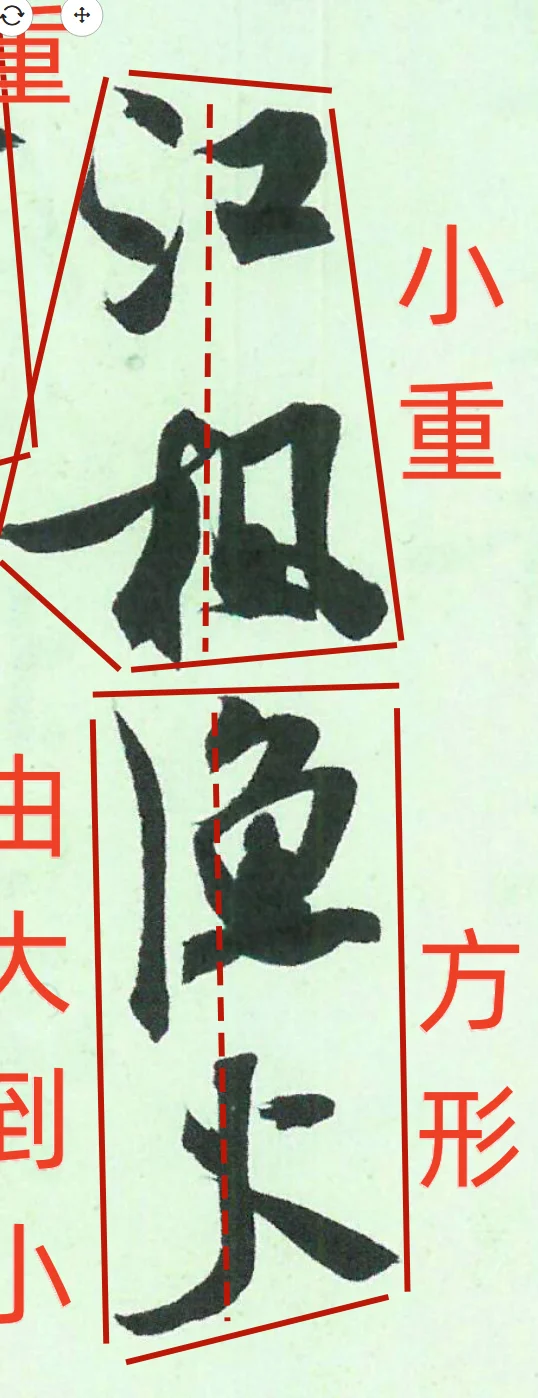 小重
方形
江枫渔火
重
由大到小